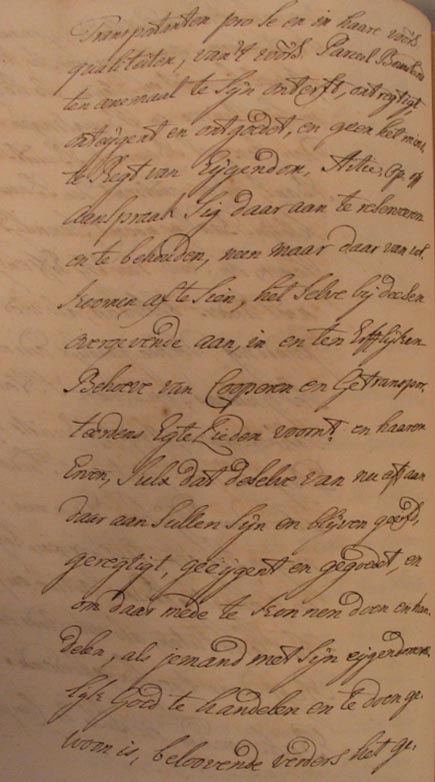 Transportanten pro se en in haare voors.
qualiteiten, van't voors. Parceel Bembden
ten eenemaal te sijn onterft, ontregtigt,
onteijgent en ontgoedet, en geen het min-
te Regt van Eijgendom, Actie, Op of
aanspraak sig daar aan te reserveren
en te behouden, neen maar daar van vol-
koomen af te sien, het selve bij deesen
overgevende aan, in en ten Erfflijken
Behoeve van Cooperen en Getranspor-
teerdens Egte Lieden voornt. en haaren
Erven, Sulx dat deselve van nu aff aan
daar aan sullen sijn en blijven geerft,
geregtigt, geëijgent en gegoedet, en
om daar mede te konnen doen en han-
delen, als jemand met sijn eijgendomme-
lijk Goed te handelen en te doen ge-
woon is, beloovende verders het ge-